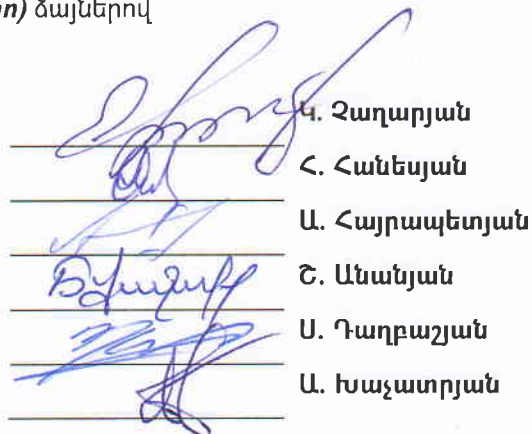 ո) ձայներով
Կ. Չաղարյան
Հ. Հանեսյան
Ա. Հայրապետյան
Շ. Անանյան
Ս. Դաղբաշյան
Ա. Խաչատրյան